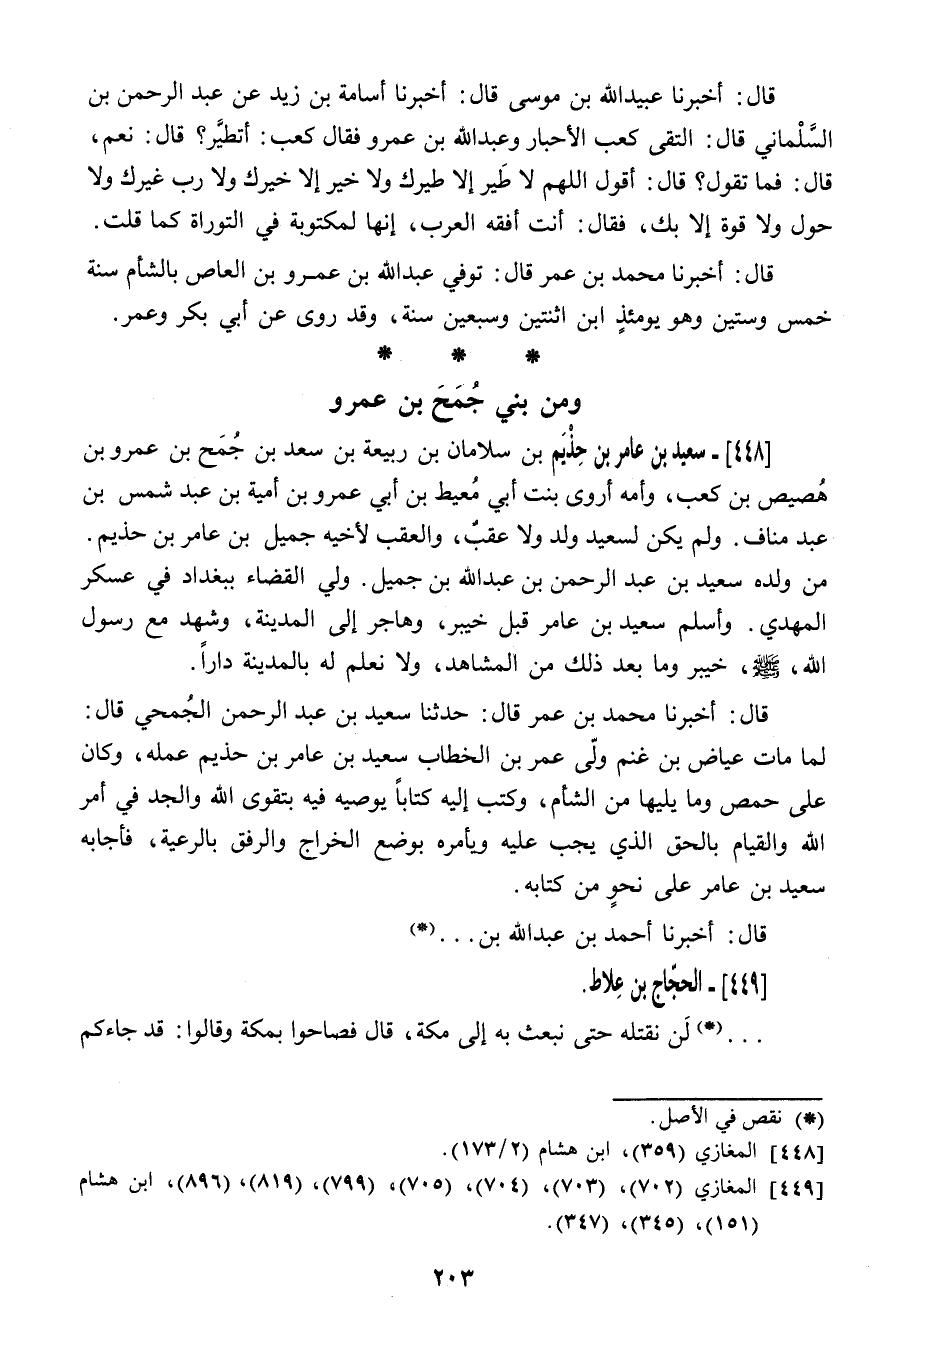 قال: أخبرنا عبيدالله بن موسى قال: أخبرنا أسامة بن زيد عن عبد الرحمن بن
السَّلْماني قال: التقى كعب الأحبار وعبدالله بن عمرو فقال كعب: أتطيَّر؟ قال: نعم،
قال: فما تقول؟ قال: أقول اللهم لا طَير إلا طيرك ولا خير إلا خيرك ولا رب غيرك ولا
حول ولا قوة إلا بك، فقال: أنت أفقه العرب، إنها لمكتوبة في التوراة كما قلت.
قال: أخبرنا محمد بن عمر قال: توفي عبدالله بن عمرو بن العاص بالشأم سنة
خمس وستين وهو يومئذٍ ابن اثنتين وسبعين سنة، وقد روى عن أبي بكر وعمر.
* * *
ومن بني جُمَحَ بن عمرو
[٤٤٨] ـ سعيد بن عامر بن حِذْيَم بن سلامان بن ربيعة بن سعد بن جُمَح بن عمرو بن
هُصيص بن كعب، وأمه أروى بنت أبي مُعيط بن أبي عمرو بن أمية بن عبد شمس بن
عبد مناف. ولم يكن لسعيد ولد ولا عقبٌ، والعقب لأخيه جميل بن عامر بن حذيم.
من ولده سعيد بن عبد الرحمن بن عبدالله بن جميل. ولي القضاء ببغداد في عسكر
المهدي. وأسلم سعيد بن عامر قبل خيبر، وهاجر إلى المدينة، وشهد مع رسول
الله، ﷺ، خيبر وما بعد ذلك من المشاهد، ولا نعلم له بالمدينة داراً.
قال: أخبرنا محمد بن عمر قال: حدثنا سعيد بن عبد الرحمن الجُمحي قال:
لما مات عياض بن غنم ولّى عمر بن الخطاب سعيد بن عامر بن حذيم عمله، وكان
على حمص وما يليها من الشأم، وكتب إليه كتاباً يوصيه فيه بتقوى الله والجد في أمر
الله والقيام بالحق الذي يجب عليه ويأمره بوضع الخراج والرفق بالرعية، فأجابه
سعيد بن عامر على نحوٍ من كتابه.
قال: أخبرنا أحمد بن عبدالله بن...(*)
[٤٤٩] ـ الحجّاج بن عِلاط.
...(*) لَن نقتله حتى نبعث به إلى مكة، قال فصاحوا بمكة وقالوا: قد جاءكم
(*) نقص في الأصل.
[٤٤٨] المغازي (٣٥٩)، ابن هشام (١٧٣/٢).
[٤٤٩] المغازي (٧٠٢)، (٧٠٣)، (٧٠٤)، (٧٠٥)، (٧٩٩)، (٨١٩)، (٨٩٦)، ابن هشام
(١٥١)، (٣٤٥)، (٣٤٧).
٢٠٣